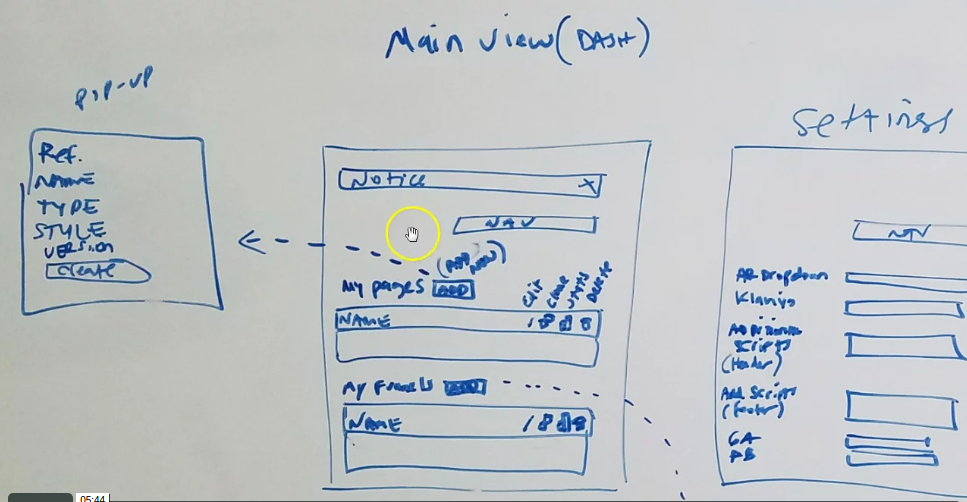 Main view (DASH)
POP-UP
Ref.
NAME
TYPE
STYLE
version
Create
Notice X
NAV
(ADD NEW)
My pages ADD
Edit Clone Stats Delete
NAME
My Funnels ADD
NAME
Settings
NAV
AR Dropdown
Klaviyo
Additional
Scripts
(Header)
Add Scripts
(Footer)
GA
05:44